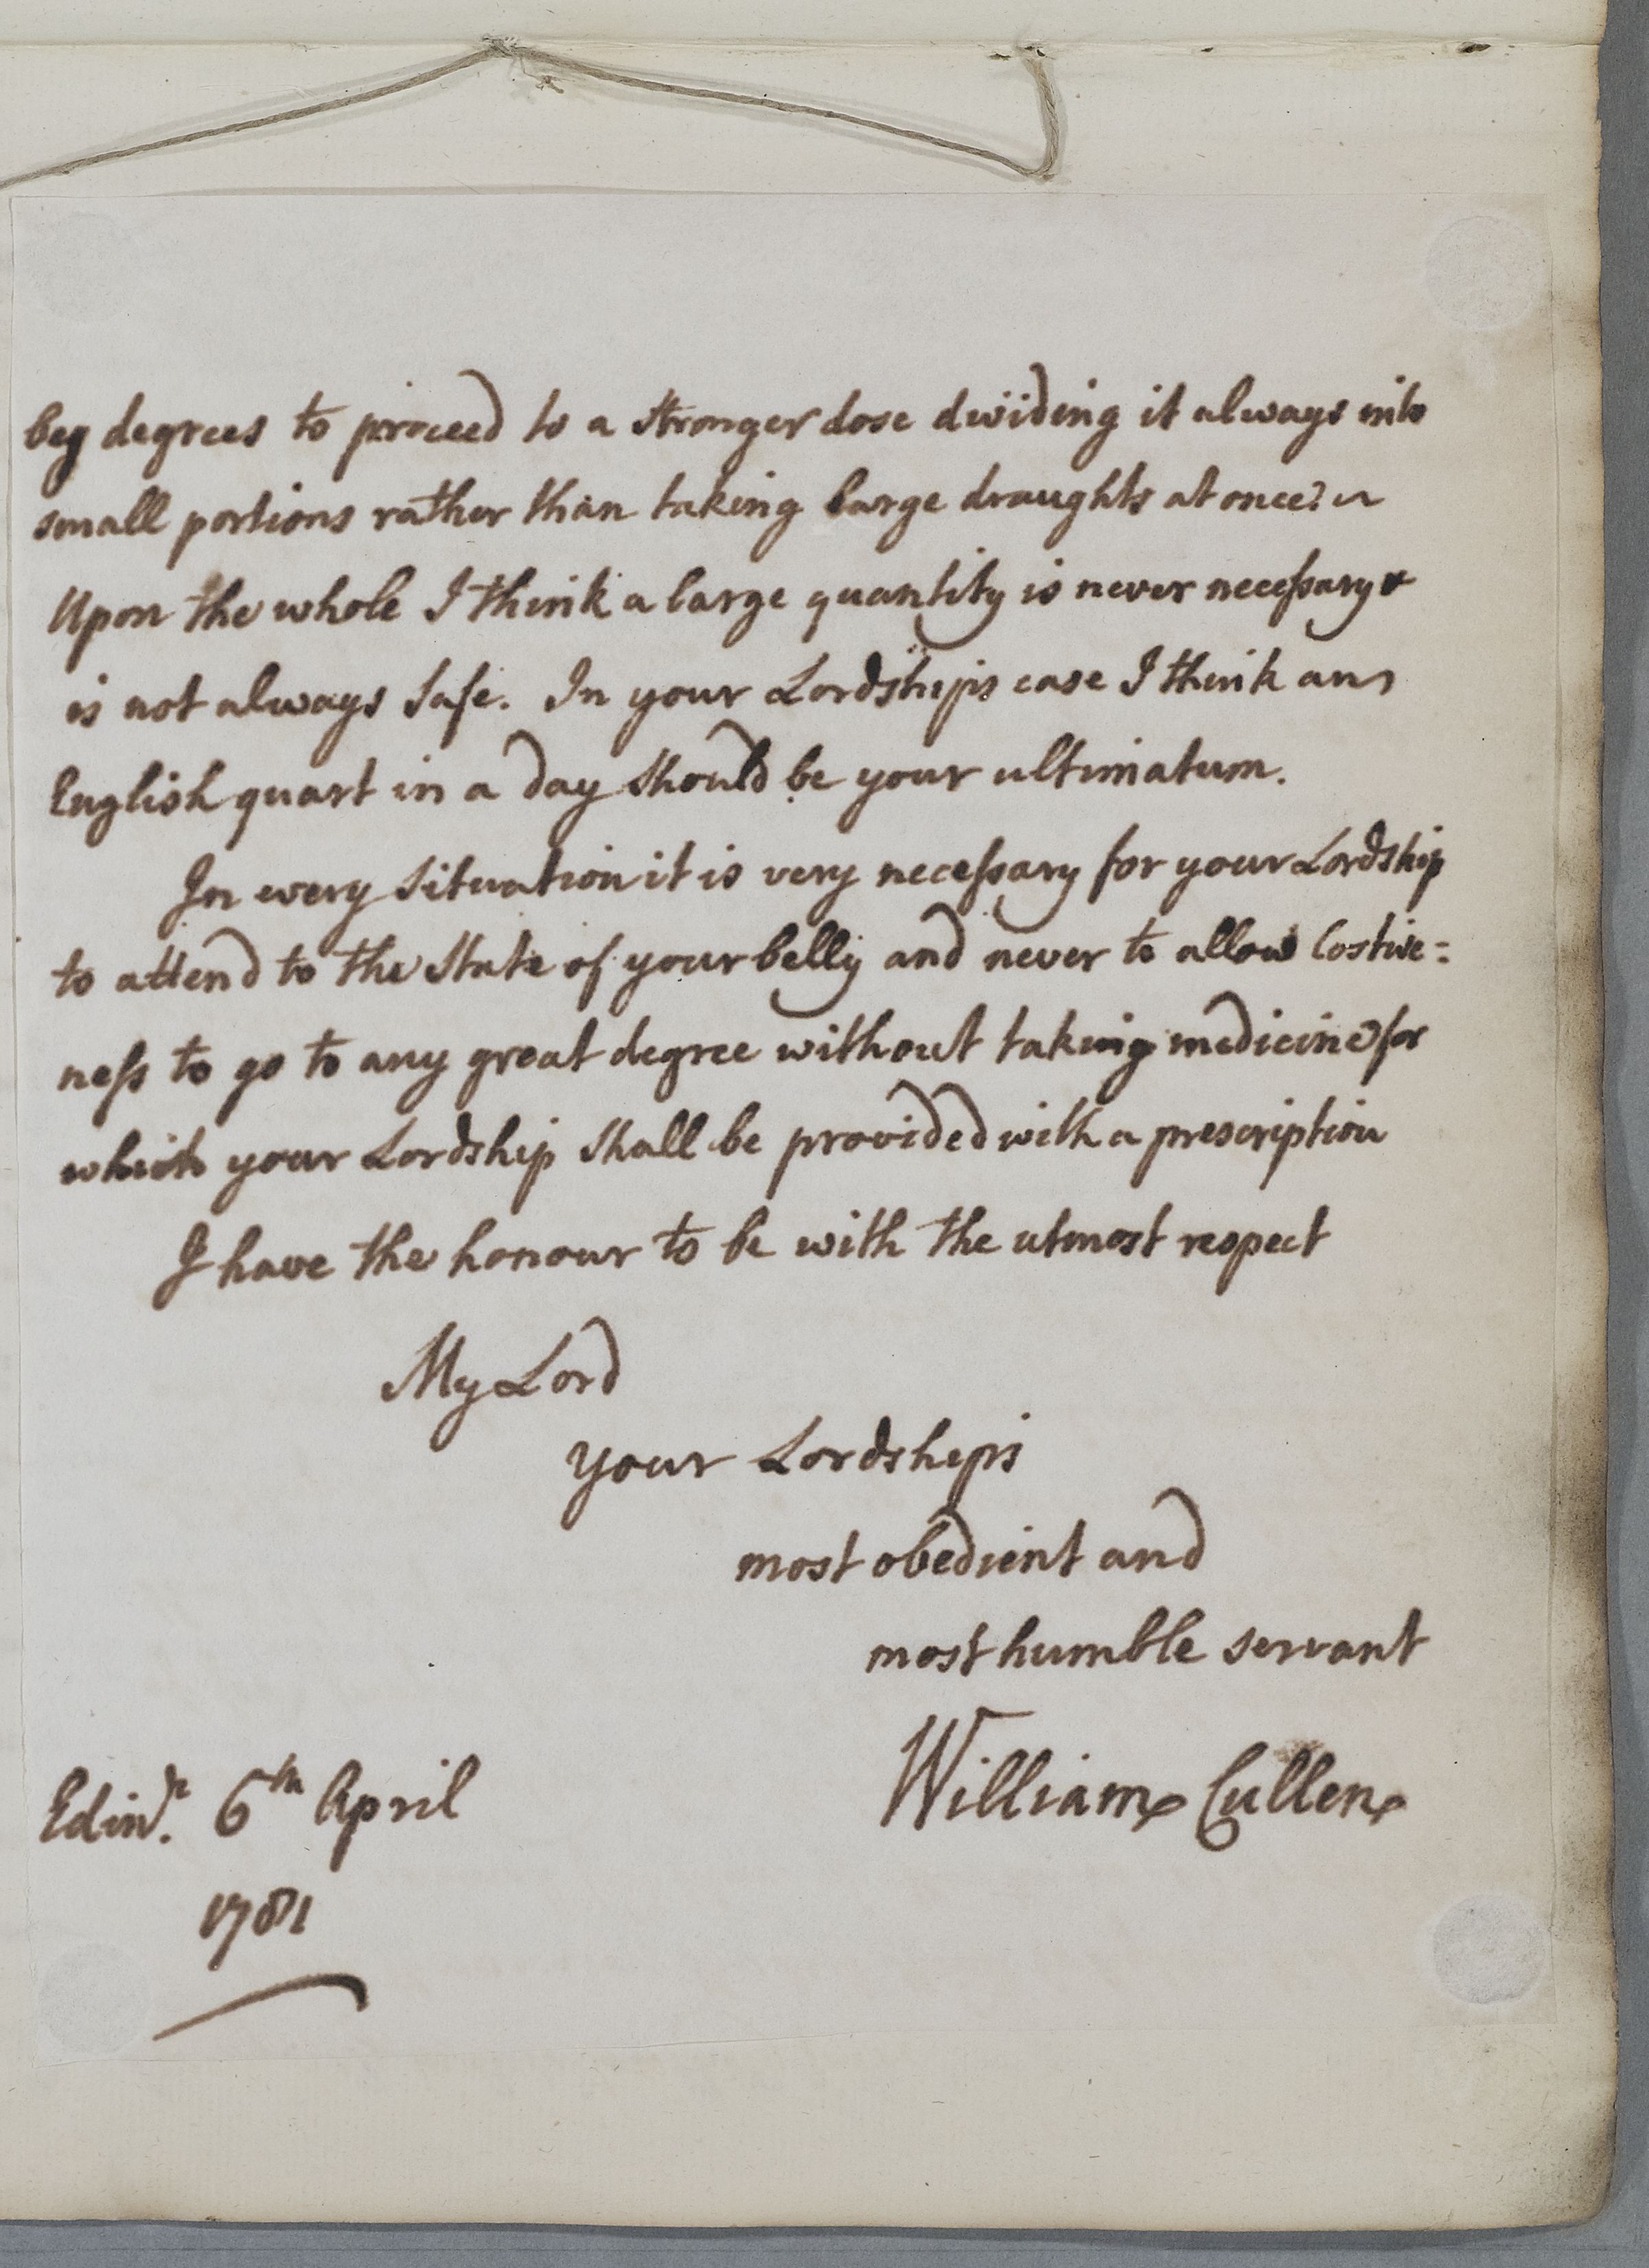 by degrees to proceed to a stronger dose dividing it always into
small portions rather than taking large draughts at once.
Upon the whole I think a large quantity is never necessary &
is not always safe. In your Lordships case I think an
English quart in a day should be your ultimatum.
In every situation it is very necessary for your Lordship
to attend to the state of your belly and never to allow Costive=
ness to go to any great degree without taking medicine for
which your Lordship shall be provided with a prescription
I have the honour to be with the utmost respect
My Lord
your Lordships
most obedient and
most humble servant
William Cullen
Edinr. 6th April
1781